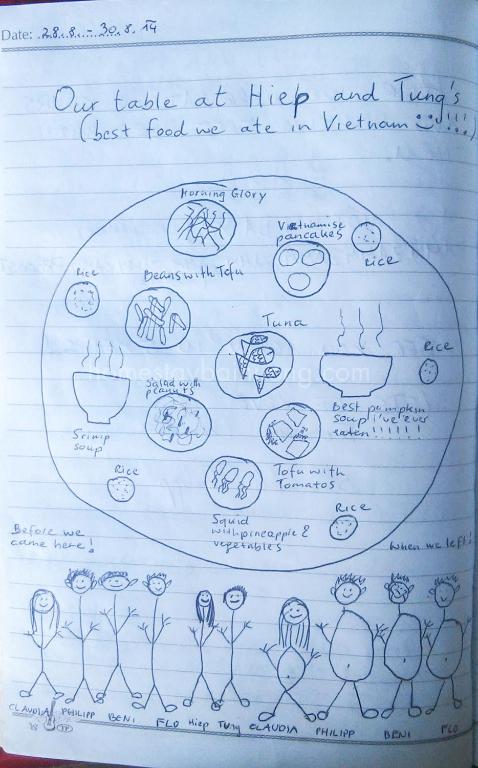 Date: 28.8. - 30.8.14
Our table at Hiep and Tung's
(best food we ate in Vietnam !!!)
Morning Glory
Vietnamise
pancakes
Rice
Rice
Beans with Tofu
Tuna
Rice
Salad with
peanuts
Srimp
soup
Best pumpkin
soup i've ever
eaten!!!!!!
Rice
Tofu with
Tomatos
Squid
with pineapple &
vegetables
Rice
Before we
came here!
When we left!
CLAUDIA PHILIPP BENI FLO Hiep Tung CLAUDIA PHILIPP BENI FLO